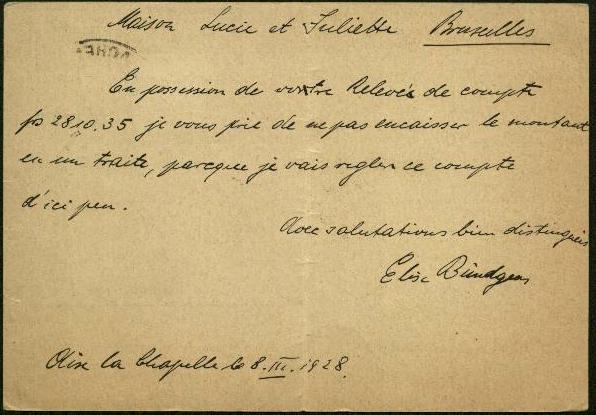 Maison Lucie et Juliette Bruxelles
En possession de votre Relevée de compte
frs 2810.35 je vous prie de ne pas encaisser le montant
en un traite, parceque je vais regler ce compte
d'ici peu.
Avec salutations bien distinguées
Elise Bündgens
Aix la Chapelle le 8.III.1928.